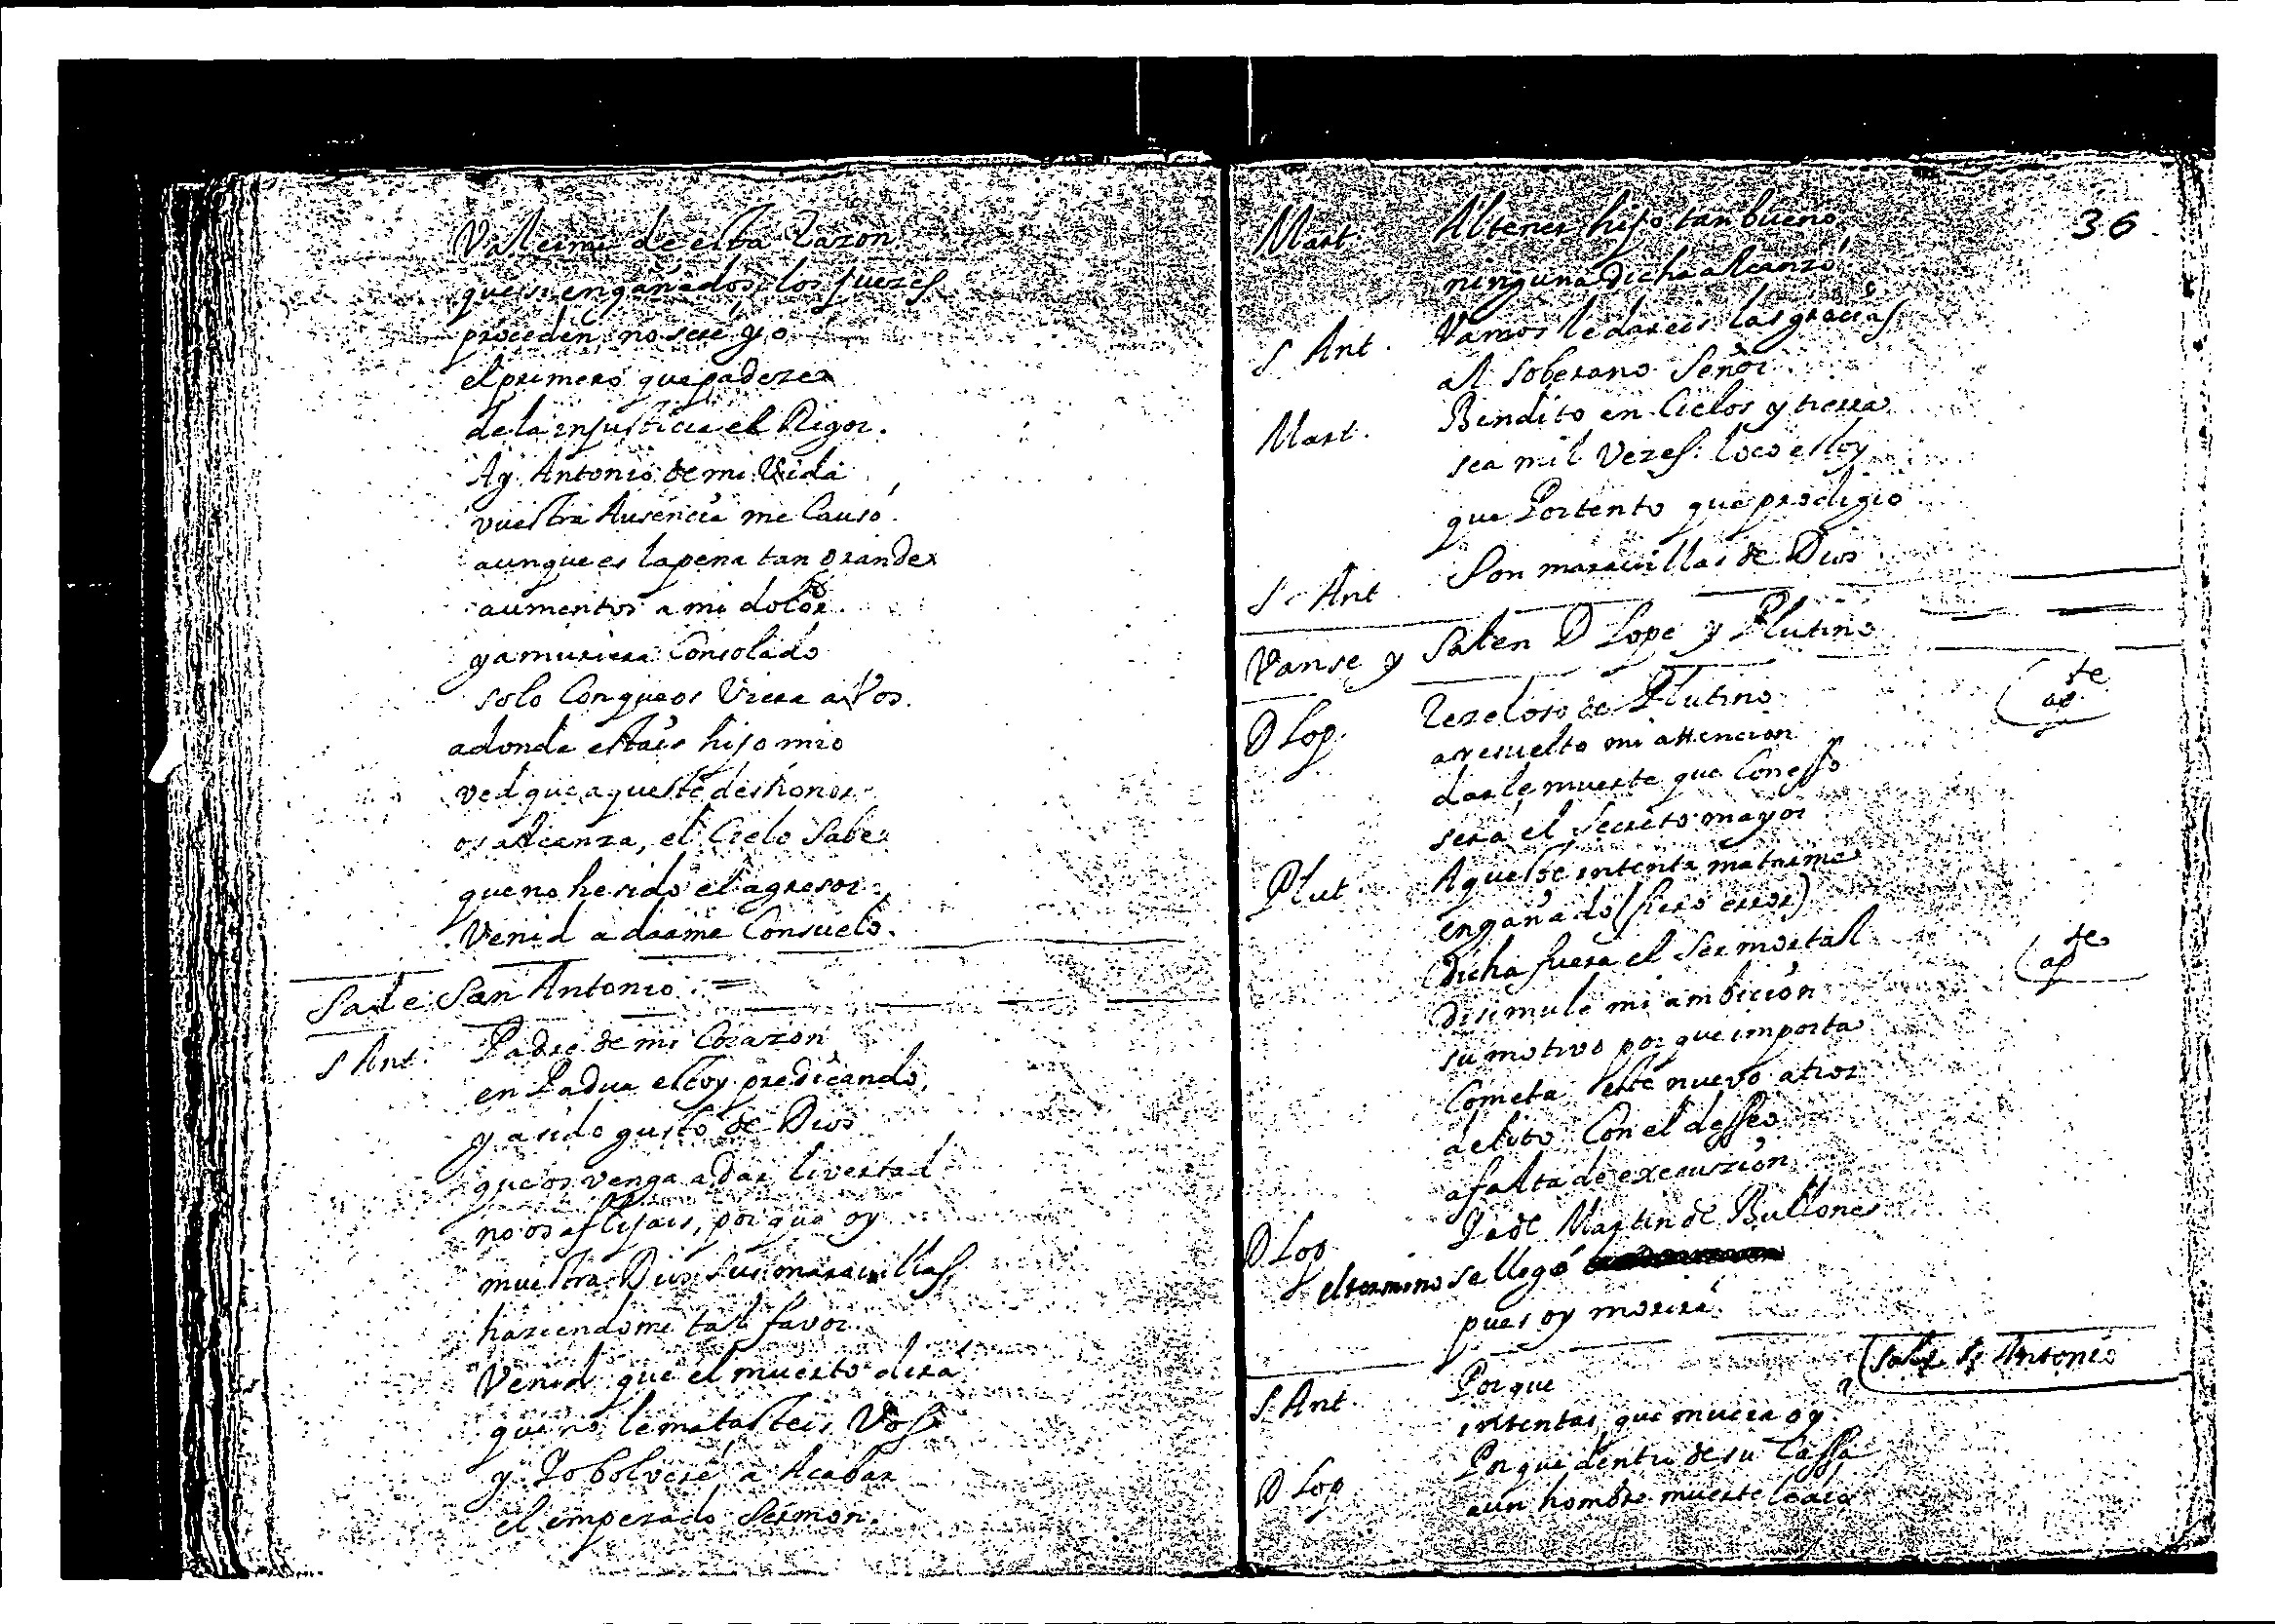 Valeime de esta Razon
que si engañados los juezes
proceden no sere yo
el primero que padezca
de la injusticia el Rigor.
Ay Antonio de mi Vida
vuestra Ausencia me Causó
aunque es la pena tan grande
aumentos a mi dolor.
ya muriera Consolado
solo Con que os Viera a Vos.
adonde estais hijo mio
ved que aqueste deshonor
os alcanza, el Cielo Sabe
que no he sido el agresor
Venid a darme Consuelo.
Sale San Antonio =
S Ant. Padre de mi Corazon
en Padua estoy predicando,
y a sido gusto de Dios
que os venga a dar livertad
no os aflijais, porque oy
muestra Dios sus maravillas,
haziendome tal favor.
Venid que el muerto dira
que no le matasteis Vos
y Yo bolveré a Acabar
el empezado Sermon.
36
Mart. Al tener hijo tan bueno
ninguna dicha alcanzó
S Ant. Vamos le dareis las gracias
al Soberano Señor
Mart. Bendito en Cielos y tierra
sea mil Vezes: loco estoy
que Portento que prodigio
S. Ant Son maravillas de Dios
Vanse y Salen D Lope y Plutino
D Lop. Rezeloso de Plutino (ap te
a resuelto mi attencion
darle muerte que Con esso
será el Secreto mayor
Plut. Aqueste intenta matarme
engañado (fiero error)
dicha fuera el Ser mortal (ap te
disimule mi ambicion
su motivo por que importa
Cometa este nuevo atroz
delito Con el desseo
a falta de execuzion
D Lop Ya de Martin de Bullones
el termino se llegó
pues oy morirá.
(Sale S. Antonio
S. Ant. Porque
intentas que muera oy?
D Lop Porque dentro de su Cassa
a un hombre muerte le dio